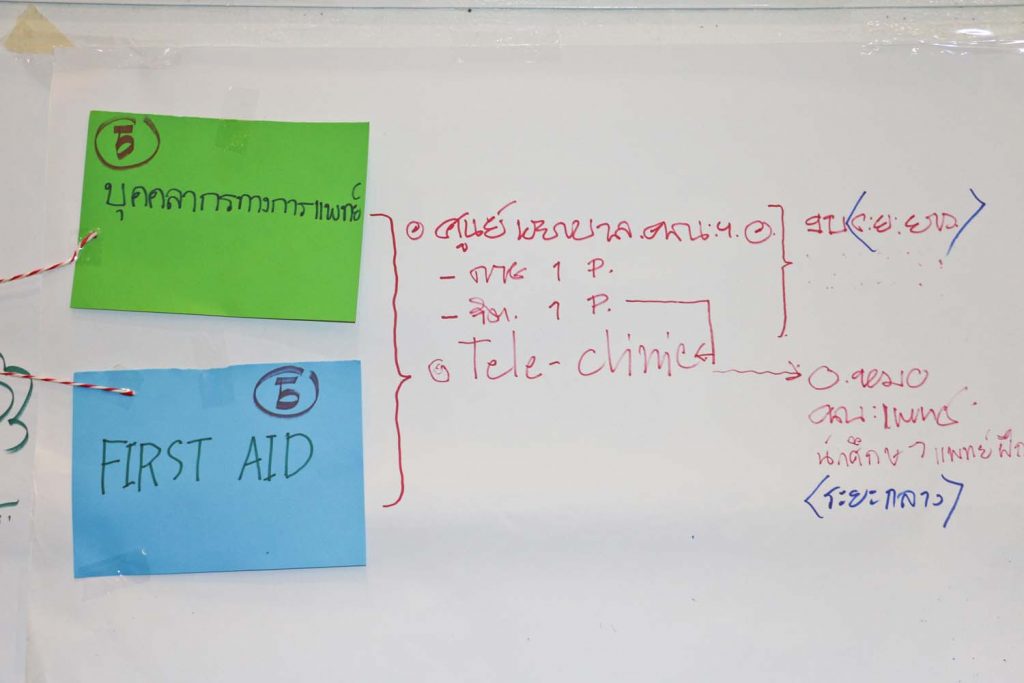 5
บุคคลากรทางการแพทย์
5
FIRST AID
ศูนย์พยาบาล.คณะฯ.
- กาย 1 P.
- จิต. 1 P.
Tele-clinic
อ.หมอ
คณะแพทย์
นักศึกษาแพทย์ฝึก
<ระยะกลาง>